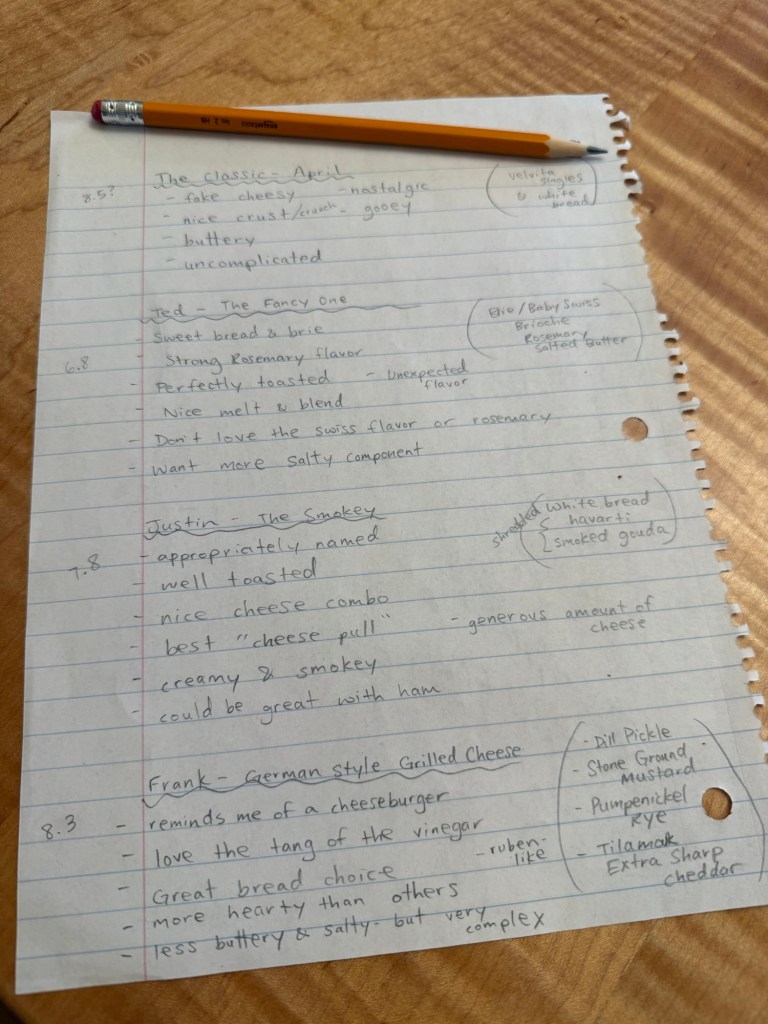 The Classic - April
8.5?
- fake cheesy - nostalgic
- nice crust/crunch - gooey
- buttery
- uncomplicated
(velvita
singles
& white
bread)
Ted - The Fancy One
- Sweet bread & brie
- Strong Rosemary flavor
6.8
- Perfectly toasted - Unexpected
flavor
- Nice melt & blend
- Don't love the swiss flavor or rosemary
- want more salty component
(Brie/Baby Swiss
Brioche
Rosemary
Salted Butter)
Justin - The Smokey
7.8
- appropriately named
- well toasted
- nice cheese combo
- best "cheese pull" - generous amount of
cheese
- creamy & smokey
- could be great with ham
(white bread
shredded { havarti
smoked gouda)
Frank - German Style Grilled Cheese
8.3
- reminds me of a cheeseburger
- love the tang of the vinegar
- Great bread choice - ruben-
like
- more hearty than others
- less buttery & salty - but very
complex
(- Dill Pickle
- Stone Ground
Mustard
- Pumpenickel
Rye
- Tilamak
Extra Sharp
cheddar)